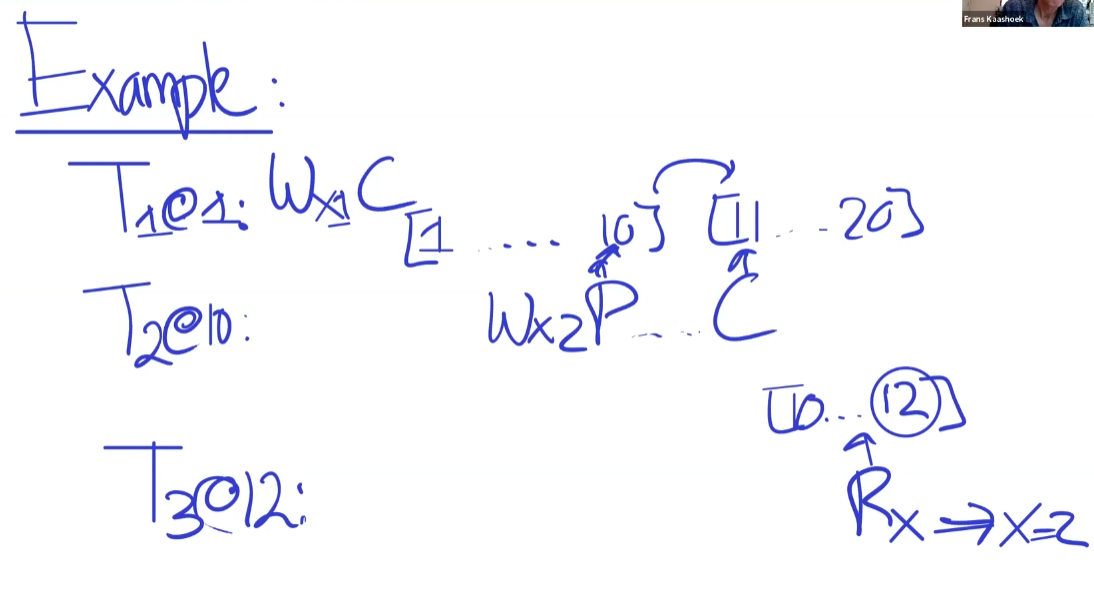 Frans Kaashoek
Example:
T1@1: Wx1 C [1 .... 10] [11 ... 20]
T2@10: Wx2 P .... C
[10... 12]
T3@12: Rx ⇒ x=2